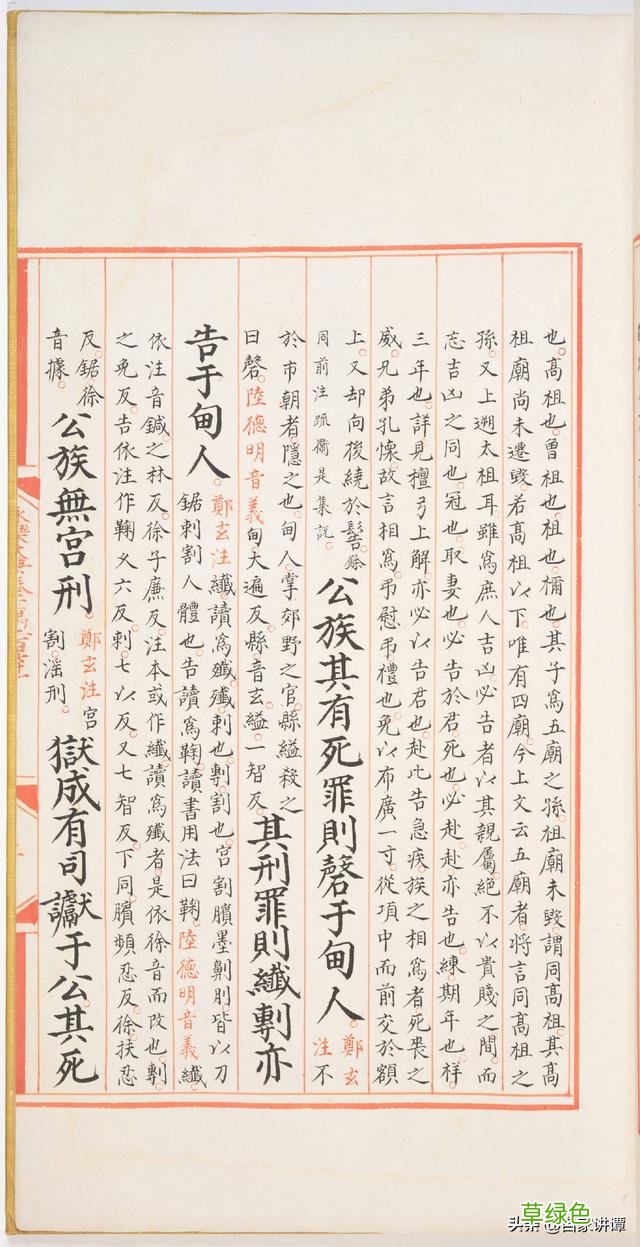 也高祖也曾祖也祖也禰也其子爲五廟之孫祖廟未毀謂同高祖其高
祖廟尚未遷毀若高祖以下唯有四廟今上文云五廟者將言同高祖之
孫又上遡太祖耳雖爲庶人吉凶必告者以其親屬絕不以貴賤之間而
志吉凶之同也冠也取妻也必告於君死也必赴赴亦告也練期年也祥
三年也詳見檀弓上解亦必以告君也赴此告急疾族之相爲者死喪之
威兄弟孔懷故言相爲弔慰弔禮也免以布廣一寸從項中而前交於額
上又却向後繞於髻餘
同前注疏衞是集説
公族其有死罪則磬于甸人
鄭玄
注不
於市朝者隱之也甸人掌郊野之官縣縊殺之
曰磬陸德明音義甸大遍反縣音玄縊一智反
其刑罪則纖剸亦
告于甸人
鄭玄注纖讀爲殲殲刺也剸割也宮割臏墨劓刖皆以刀
鋸刺割人體也告讀爲鞠讀書用法曰鞠陸德明音義纖
依注音鍼之林反徐子廉反注本或作纖讀爲殲者是依徐音而改也剸
之免反告依注作鞠久六反刺七以反又七智反下同臏頻忍反徐扶忍
反鋸徐
音據
公族無宫刑
鄭玄注宮
割淫刑
獄成有司讞于公其死
草绿色
头条 @百家讲谭